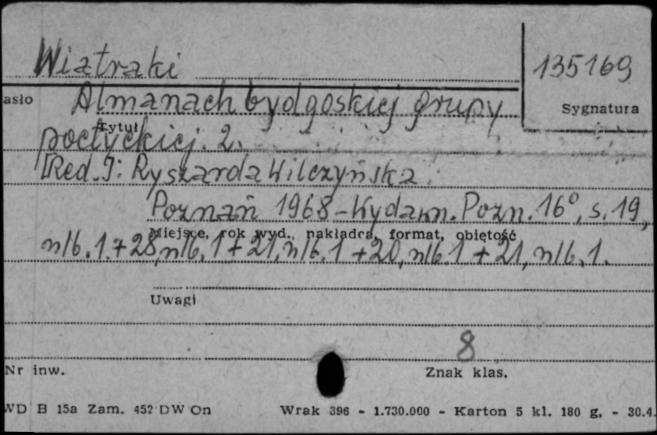 Wiatraki
135169
asło
Almanach bydgoskiej grupy
Sygnatura
Tytuł
poetyckiej. 2.
[Red.]: Ryszarda Wilczyńska.
Poznań 1968 - Wydawn. Pozn. 16°, s. 19,
Miejsce, rok wyd., nakładca, format, objętość
nlb. 1. + 28, nlb. 1 + 21, nlb. 1 + 20, nlb. 1 + 21, nlb. 1.
Uwagi
8
Nr inw.
Znak klas.
WD B 15a Zam. 452 DW On Wrak 396 - 1.730.000 - Karton 5 kl. 180 g. - 30.4.